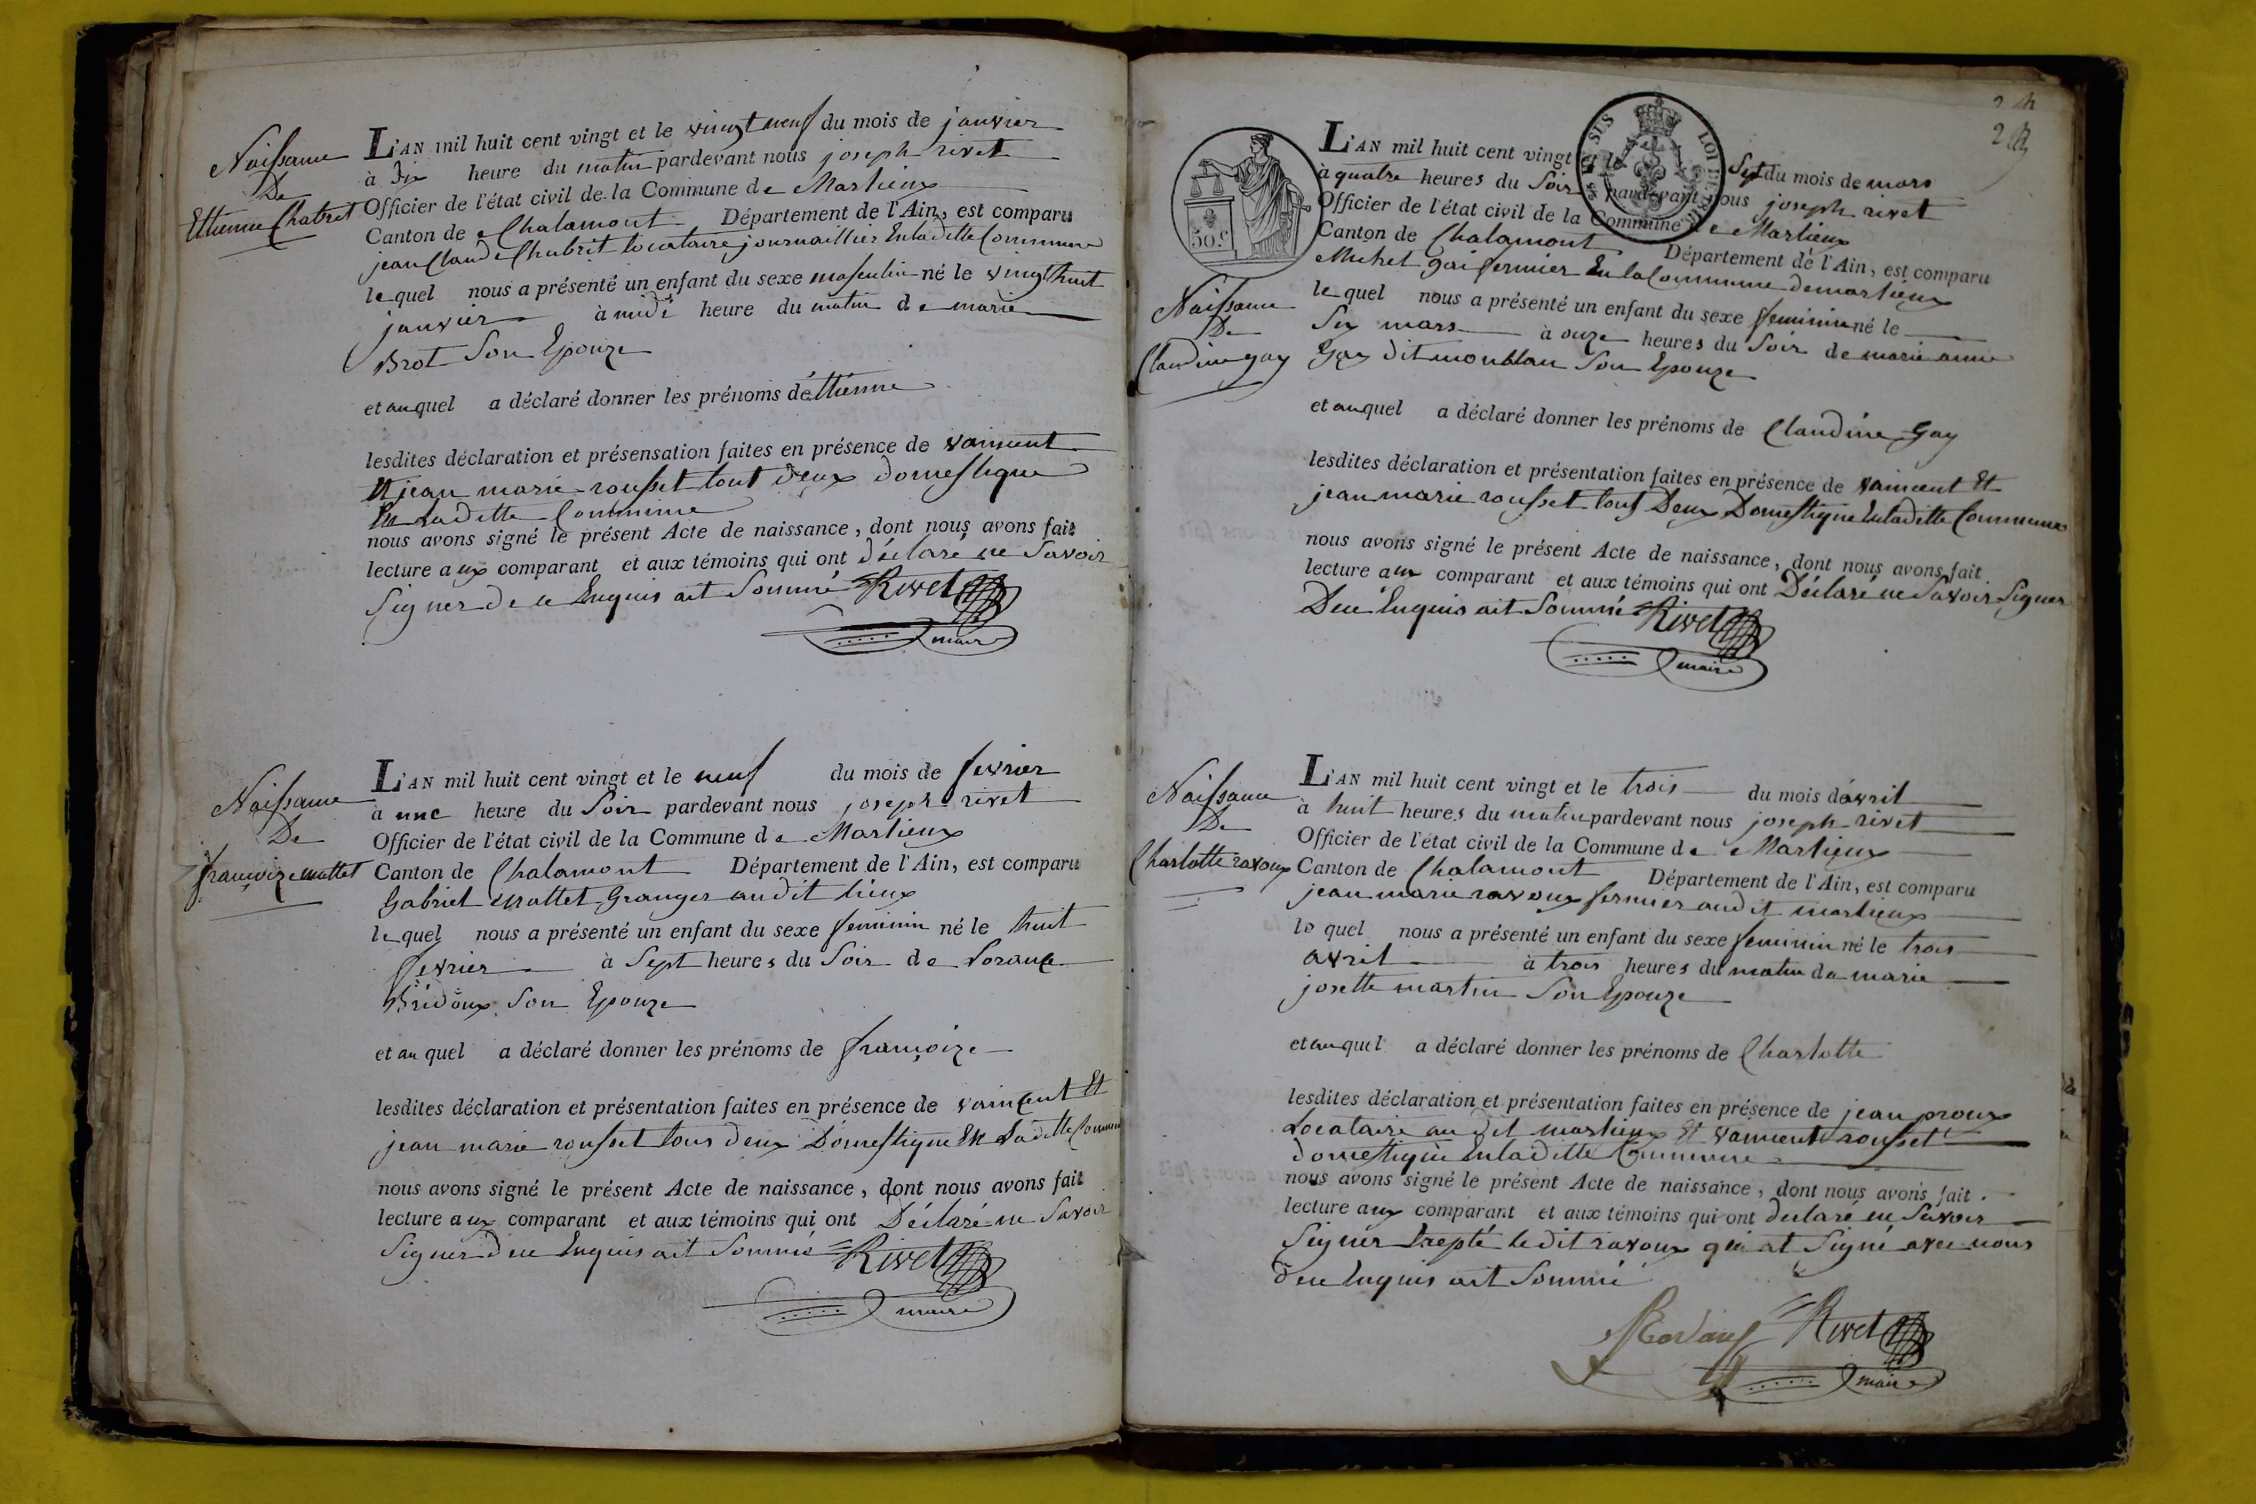 Naissance
De
Ettienne Chabret
L'AN mil huit cent vingt et le vingt neuf du mois de janvier
à dix heure du matin pardevant nous joseph rivet
Officier de l'état civil de la Commune de Marlieux
Canton de Chalamont Département de l'Ain, est comparu
jean Claude Chabrit locataire journaillier Enladitte Commune
lequel nous a présenté un enfant du sexe masculin né le vingt huit
janvier à midi heure du matin de marie
Brot Son Epouze
et auquel a déclaré donner les prénoms d'éttienne
lesdites déclaration et présensation faites en présence de vaincent
Et jean marie rousset tout deux domestique
En Laditte Commune
nous avons signé le présent Acte de naissance, dont nous avons fait
lecture aux comparant et aux témoins qui ont déclaré ne Savoir
Signer de ce Enquis ait Sommé Rivet
maire
Naissance
De
françoize mattet
L'AN mil huit cent vingt et le neuf du mois de fevrier
à une heure du Soir pardevant nous joseph rivet
Officier de l'état civil de la Commune de Marlieux
Canton de Chalamont Département de l'Ain, est comparu
Gabriel Mattet Granger audit lieux
lequel nous a présenté un enfant du sexe feminin né le huit
fevrier à Sept heures du Soir de Lorance
Bridoux Son Epouze
et au quel a déclaré donner les prénoms de françoize
lesdites déclaration et présentation faites en présence de vaincent Et
jean marie rousset tous deux Domestique En Laditte Commune
nous avons signé le présent Acte de naissance, dont nous avons fait
lecture aux comparant et aux témoins qui ont Déclaré ne Savoir
Signer de ce Enquis ait Sommé Rivet
maire
24
50 c
L'AN mil huit cent vingt et le Sept du mois de mars
à quatre heures du Soir pardevant nous joseph rivet
Officier de l'état civil de la Commune de Marlieux
Canton de Chalamont Département de l'Ain, est comparu
Michel gai fermier En la Commune de marlieux
lequel nous a présenté un enfant du sexe feminin né le
Six mars à onze heures du Soir de marie anne
Gay dit monblan Son Epouze
Naissance
De
Claudine gay
et auquel a déclaré donner les prénoms de Claudine Gay
lesdites déclaration et présentation faites en présence de vaincent Et
jean marie rousset tous Deux Domestique Enladitte Commune
nous avons signé le présent Acte de naissance, dont nous avons fait
lecture aux comparant et aux témoins qui ont Déclaré ne Savoir Signer
De ce Enquis ait Sommé Rivet
maire
Naissance
De
Charlotte ravoux
L'AN mil huit cent vingt et le trois du mois d'avril
à huit heures du matin pardevant nous joseph rivet
Officier de l'état civil de la Commune de Marlieux
Canton de Chalamont Département de l'Ain, est comparu
jean marie ravoux fermier audit marlieux
le quel nous a présenté un enfant du sexe feminin né le trois
avril à trois heures du matin de marie
josette martin Son Epouze
et auquel a déclaré donner les prénoms de Charlotte
lesdites déclaration et présentation faites en présence de jean proux
Locataire au dit marlieux Et vaincent rousset
domestique Enladitte Commune
nous avons signé le présent Acte de naissance, dont nous avons fait
lecture aux comparant et aux témoins qui ont declaré ne Savoir
Signer Exepté ledit ravoux qui at Signé avec nous
de ce Enquis ait Sommé
Ravoux Rivet
maire